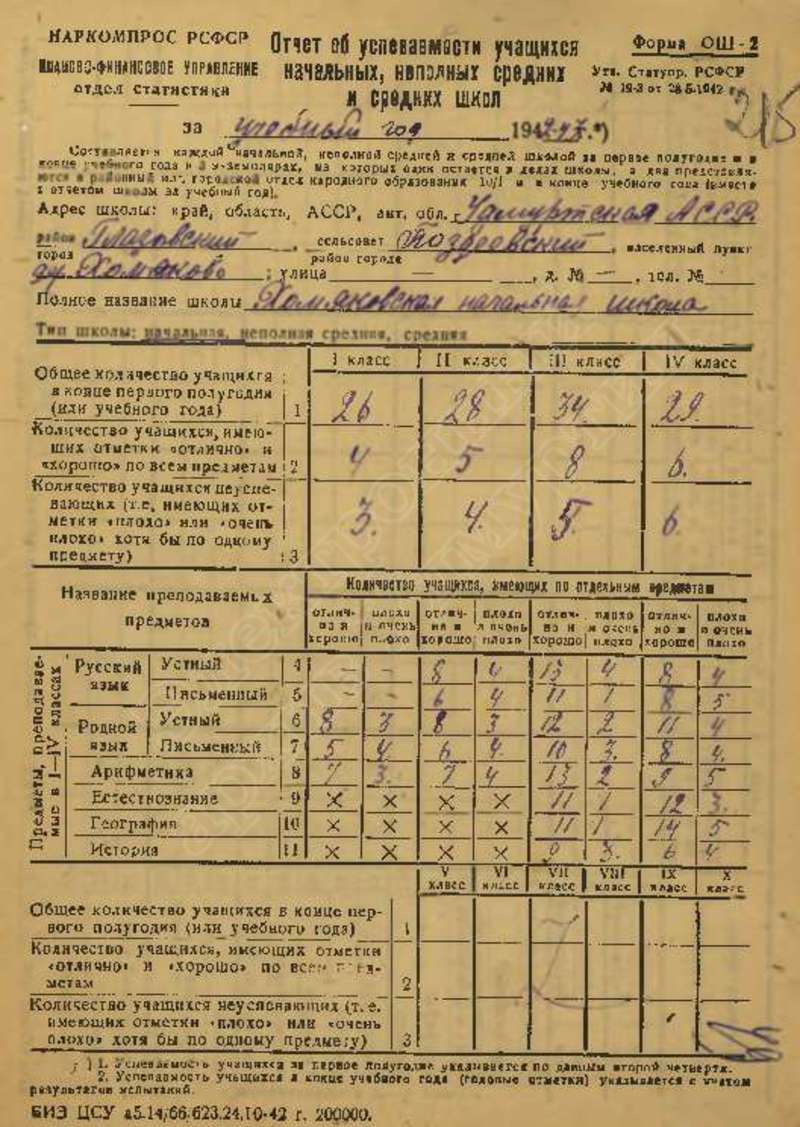 НАРКОМПРОС РСФСР
ПЛАНОВО-ФИНАНСОВОЕ УПРАВЛЕНИЕ
ОТДЕЛ СТАТИСТИКИ
Отчет об успеваемости учащихся
начальных, неполных средних
и средних школ
Форма ОШ-2
Утв. Статупр. РСФСР
за учебный год 194
Составляется каждой начальной, неполной средней и средней школой за первое полугодие и в
конце учебного года в 3 экземплярах, из которых один остается в делах школы, а два представля-
ются в районный или городской отдел народного образования и в конце учебного года (вместе
с отчетом школы за учебный год).
Адрес школы: край, область, АССР, авт. обл. Удмуртская АССР
район Глазовский, сельсовет, населенный пункт
город район города
д. Хомяково; улица — , д. № — , тел. №
Полное название школы Хомяковская начальная школа
Тип школы: начальная, неполная средняя, средняя
I класс II класс III класс IV класс
Общее количество учащихся
в конце первого полугодия
(или учебного года) 1 26 28 34 29
Количество учащихся, имею-
щих отметки «отлично» и
«хорошо» по всем предметам 2 4 5 8 6
Количество учащихся неуспе-
вающих (т.е. имеющих от-
метки «плохо» или «очень
плохо» хотя бы по одному
предмету) 3 3. 4. 5. 6
Название преподаваемых
предметов
Количество учащихся, имеющих по отдельным предметам
отлич- плохо отлич- плохо отлич- плохо отлич- плохо
но и и очень но и и очень но и и очень но и и очень
хорошо плохо хорошо плохо хорошо плохо хорошо плохо
Предметы, преподавае-
мые в I—IV классах
Русский язык Устный 4 — — 8 4 13 4 8 4
Письменный 5 — — 6 4 11 1 8 5
Родной язык Устный 6 8 3 8 3 12 2 11 4
Письменный 7 5 4 6 4 10 3. 8 4.
Арифметика 8 7 3. 7 4 13 2 9 5
Естествознание 9 × × × × 11 1 12 3.
География 10 × × × × 11 1 14 5
История 11 × × × × 9 3. 6 4
V класс VI класс VII класс VIII класс IX класс X класс
Общее количество учащихся в конце пер-
вого полугодия (или учебного года) 1
Количество учащихся, имеющих отметки
«отлично» и «хорошо» по всем пред-
метам 2
Количество учащихся неуспевающих (т.е.
имеющих отметки «плохо» или «очень
плохо» хотя бы по одному предмету) 3
*) 1. Успеваемость учащихся за первое полугодие указывается по данным второй четверти.
2. Успеваемость учащихся в конце учебного года (годовые отметки) указывается с учетом
результатов испытаний.
БИЗ ЦСУ 10-42 г. 200000.